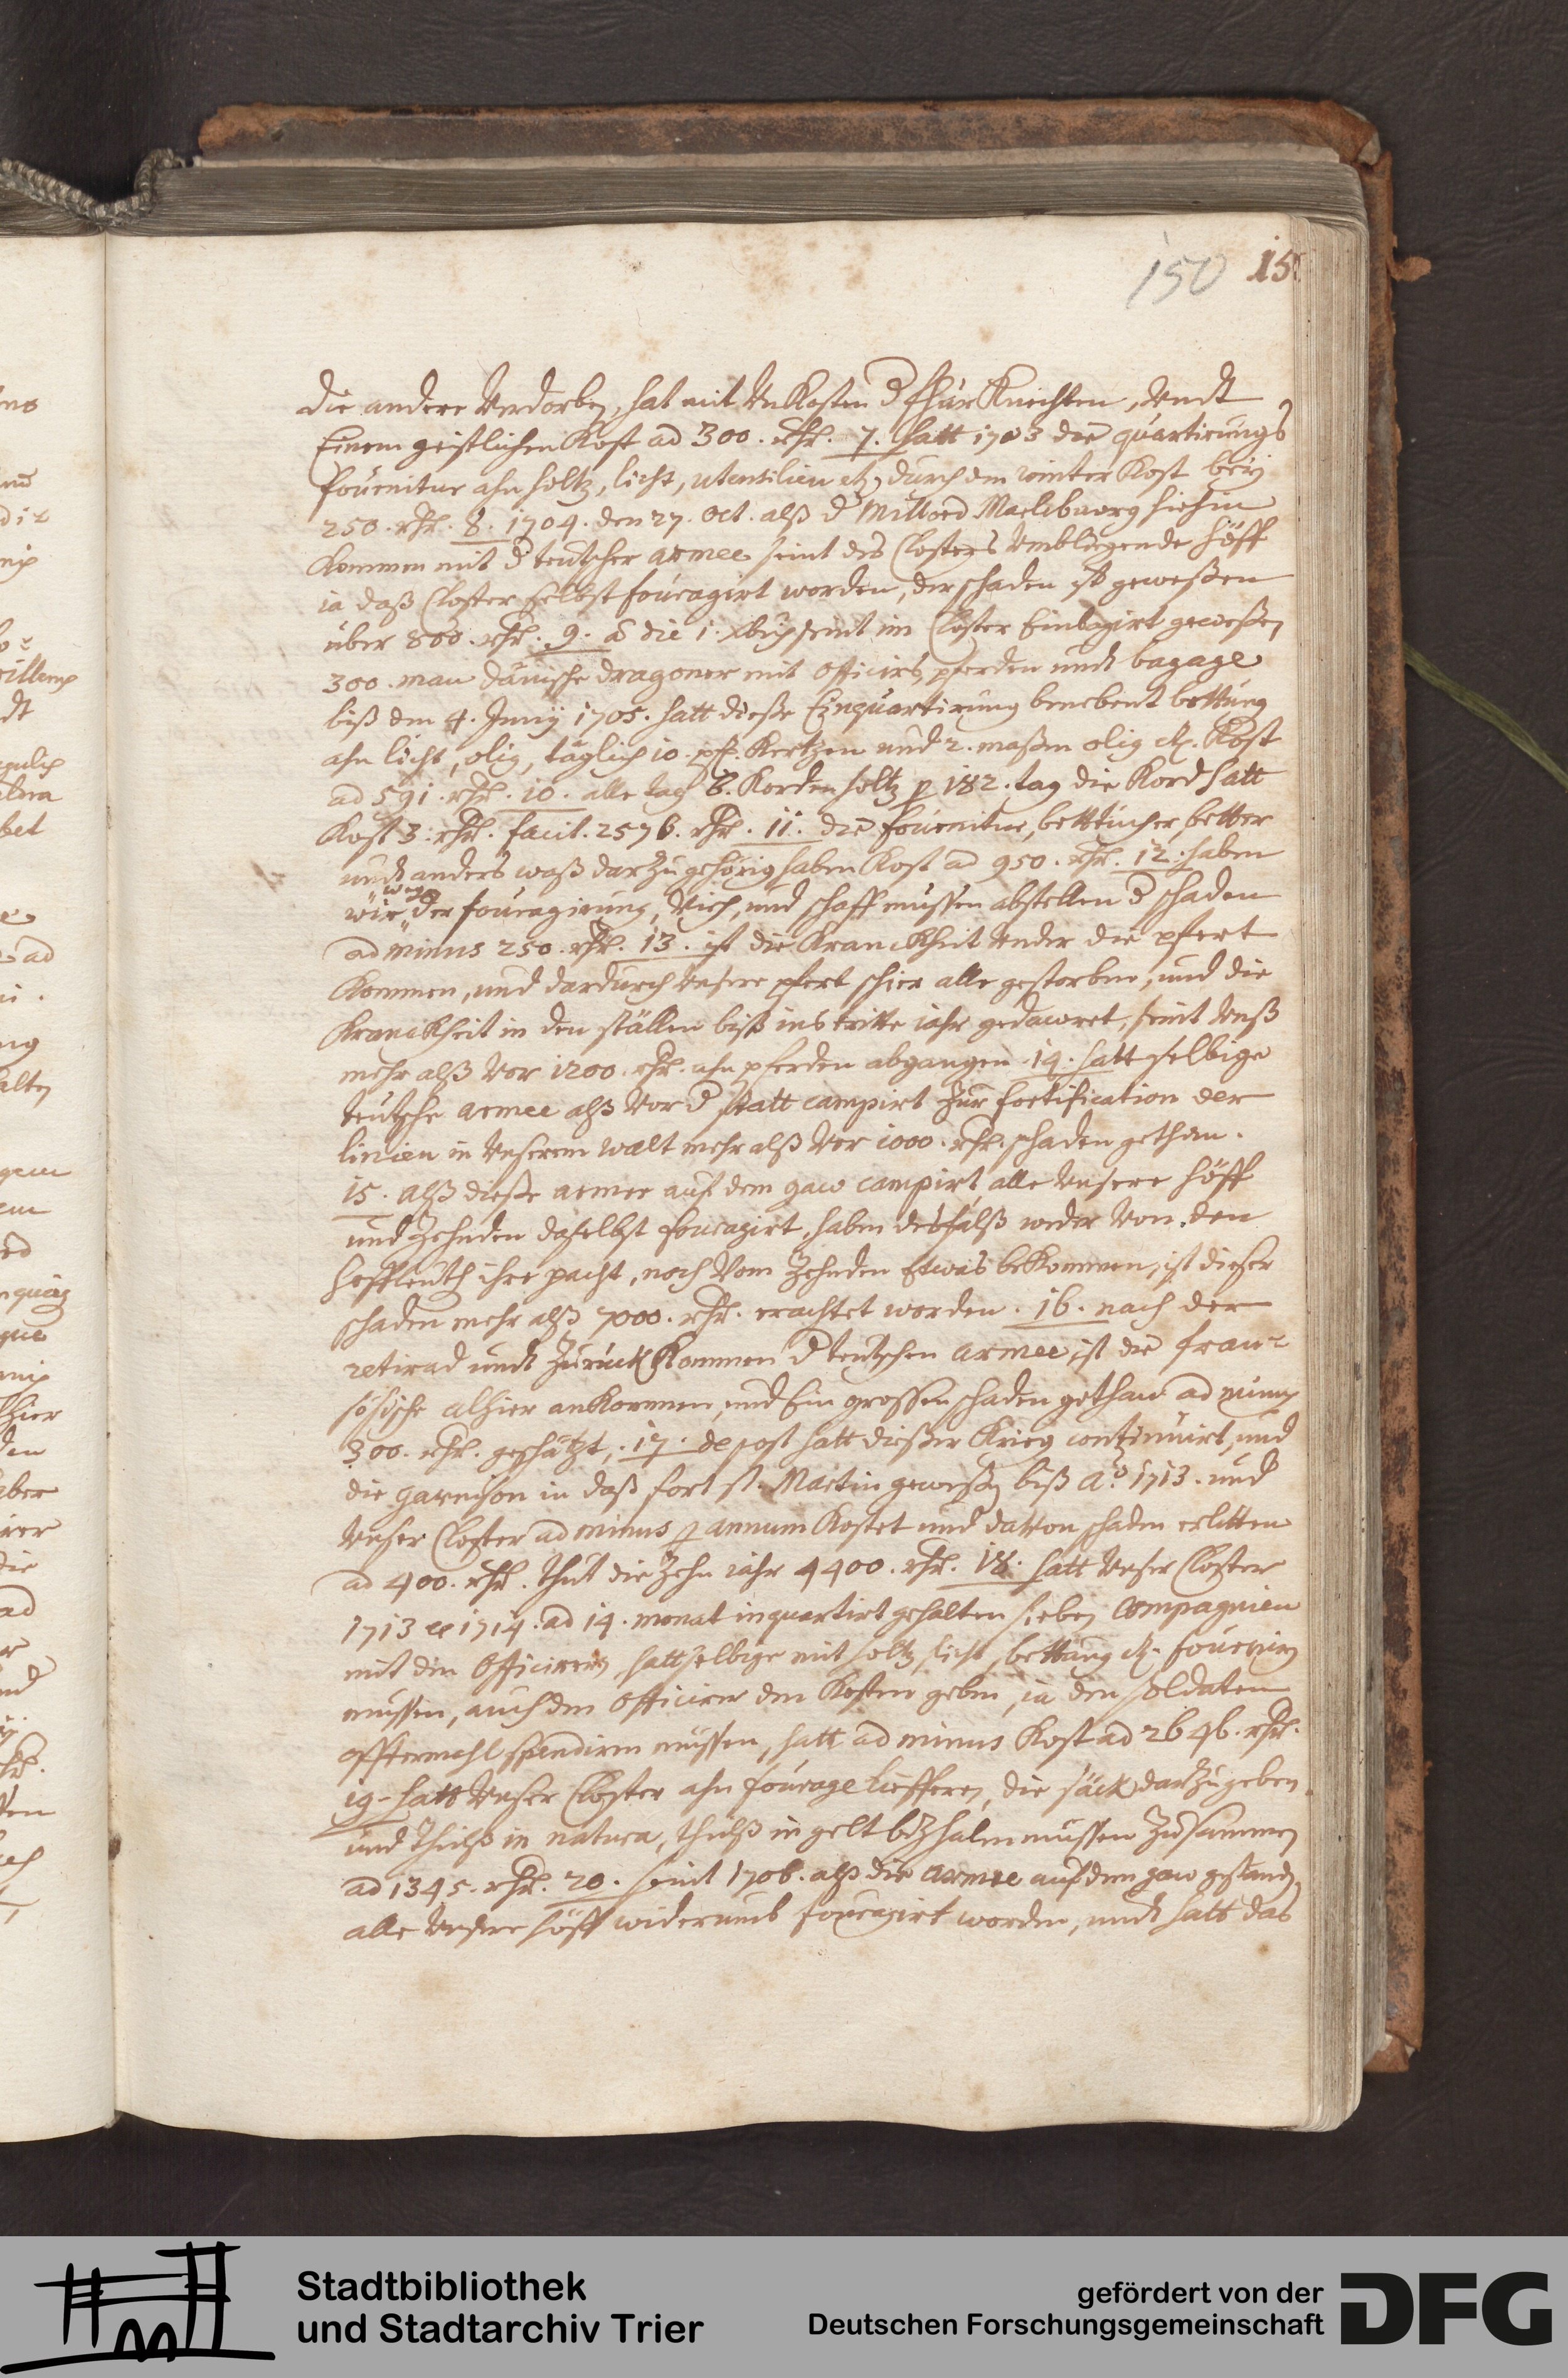 150 15
die andere verdorben, hat mit unkosten d fhür Knechten, undt
Einem geistlichen Kost ad 300. rthr. 7. hatt 1703 die quartirungs
fournitur ahn holtz, licht, utensilien etc. durch den winter Kost beÿ
250. rthr. 8. 1704. den 27. Oct. alß d Millord Marlebuorg hiehin
Kommen mit d teutscher armee seint des Closters umbligende höff
ia daß Closter selbst fouragirt worden, der schaden ist geweßen
über 800. rthr. 9. à die 1. Xbris seint im Closter Einlogirt geweßen
300. man dänische dragoner mit officirs, pferden undt bagage
biß den 4. Junij 1705. hatt dieße Einquartirung benebent bettung
ahn licht, olig, täglich 10. pf. Kertzen und 2. maßen olig etc. Kost
ad 591. rthr. 10. alle tag 8. Korden holtz p 182. tag die Kord hatt
Kost 3. rthr. facit. 2576. rthr. 11. die fournitur, bettücher better
undt anders waß darzu gehörig haben Kost ad 950. rthr. 12. haben
wir weg der fouragirung, Vieh, und schaff mussen abstellen d schaden
ad minus 250. rthr. 13. ist die Kranckheit under die pfert
Kommen, und dardurch unsere pfert schier alle gestorben, und die
Kranckheit in den ställen biß ins tritte iahr gedawret, seint unß
mehr alß vor 1200. rthr. ahn pferden abgangen 14. hatt selbige
teutsche armee alß vor d statt campirt zur fortification der
linien in unserem walt mehr alß vor 1000. rthr. schaden gethan.
15. alß dieße armee auf dem gaw campirt, alle unsere höff
und Zehnden daselbst fouragirt, haben desfalß weder von den
hoffleuth ihre pacht, noch vom Zehnden etwas bekommen, ist dieser
schaden mehr alß 7000. rthr. erachtet worden. 16. nach der
retirad undt Zurück Kommen d teutschen armee ist die fran=
sösische alhier ankommen, und Ein grossen schaden gethan ad minus
300. rthr. geschätzt, 17. de post hatt dießer Krieg continuirt, und
die garnison in daß fort st. Martin geweßen biß Aº. 1713. und
unser Closter ad minus p annum Kostet und davon schaden erlitten
ad 400. rthr. thut die Zehn iahr 4400. rthr. 18. hatt unser Closter
1713 et 1714. ad 14. monat inquartirt gehalten sieben Compagnien
mit den Officirern, hatt selbige mit holtz, licht, bettung etc. fournirn
mussen, auch den officirer den Kosten geben, ia den soldaten
offtermahl spendiren müssen, hatt ad minus Kost ad 2646. rthr.
19. hatt unser Closter ahn fourage liefferen, die säck darzu geben
und theilß in natura, theilß in gelt bezhalen mussen zusammen
ad 1345. rthr. 20. seint 1706. alß die armee auf dem gaw gestanden
alle unsere höff widerumb fouragirt worden, undt hatt das
Stadtbibliothek
und Stadtarchiv Trier
gefördert von der
Deutschen Forschungsgemeinschaft
DFG